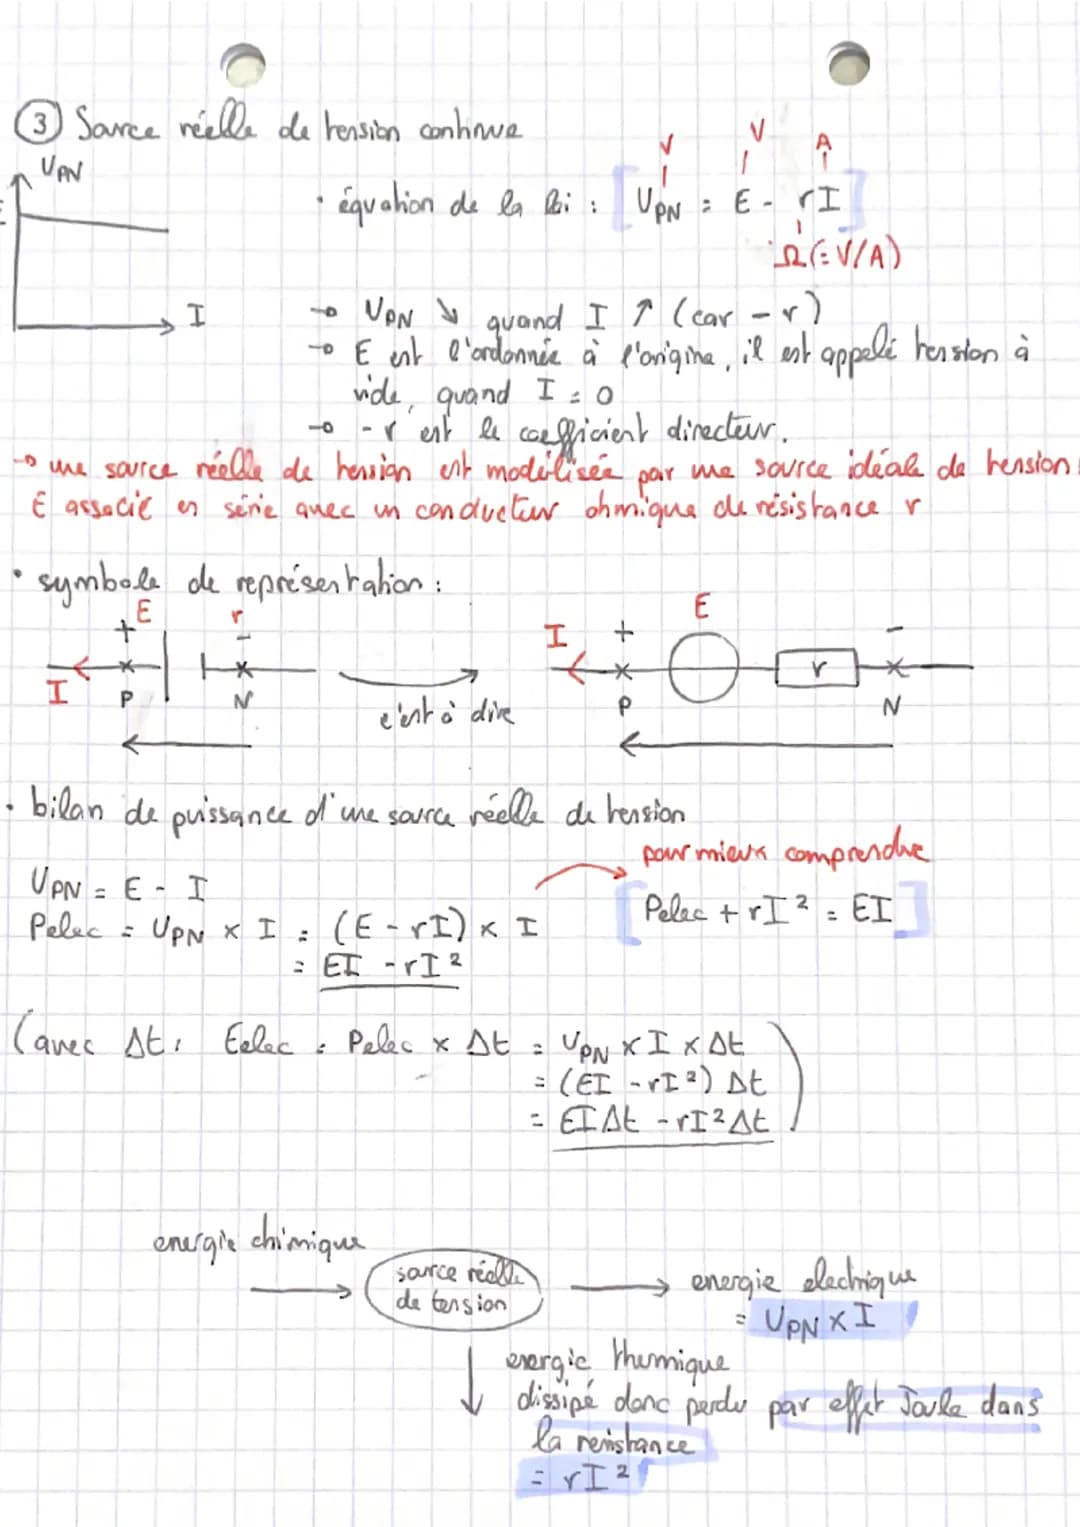 ③ Source réelle de tension continue
UPN
I
V V A
• équation de la loi : [UPN = E - rI]
Ω (= V/A)
→ UPN ↘ quand I ↑ (car - r)
→ E est l'ordonnée à l'origine, il est appelé tension à
vide, quand I = 0
→ - r est le coefficient directeur.
→ une source réelle de tension est modélisée par une source idéale de tension
E associé en série avec un conducteur ohmique de résistance r
• symbole de représentation :
+ E r -
I P N
c'est à dire
I + E r -
P N
• bilan de puissance d'une source réelle de tension
pour mieux comprendre
UPN = E - I
[Pelec + rI² = EI]
Pelec = UPN x I = (E - rI) x I
= EI - rI²
(avec Δt, Eelec = Pelec x Δt = UPN x I x Δt
= (EI - rI²) Δt
= EIΔt - rI²Δt)
energie chimique
source réelle
de tension
energie electrique
= UPN x I
energie thermique
dissipé donc perdu par effet Joule dans
la resistance
= rI²